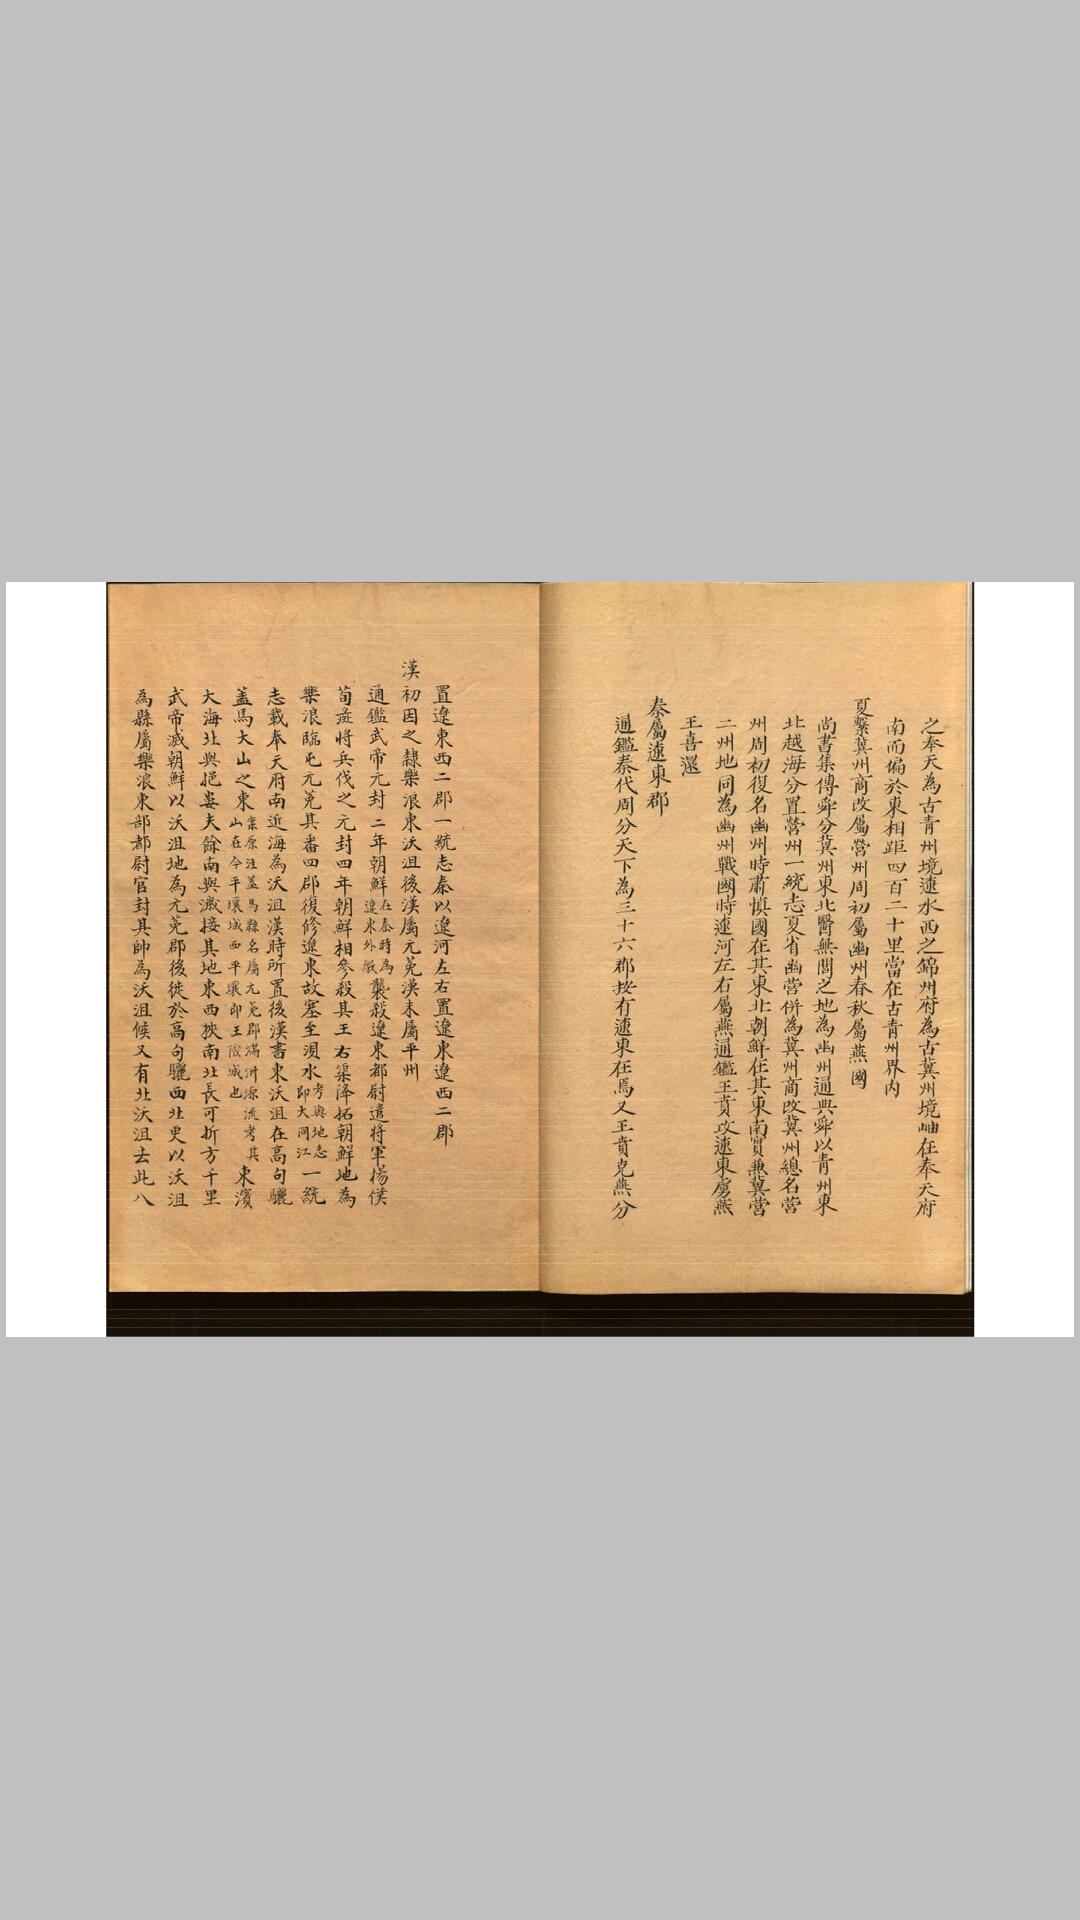 之奉天為古青州境遼水西之錦州府為古冀州境岫在奉天府
南而偏於東相距四百二十里當在古青州界內
夏繫冀州商改屬營州周初屬幽州春秋屬燕國
尚書集傳舜分冀州東北醫無閭之地為幽州通典舜以青州東
北越海分置營州一統志夏省幽營併為冀州商改冀州總名營
州周初復名幽州時肅慎國在其東北朝鮮在其東南實兼冀營
二州地同為幽州戰國時遼河左右屬燕通鑑王賁攻遼東虜燕
王喜還
秦屬遼東郡
通鑑秦代周分天下為三十六郡按有遼東在焉又王賁克燕分
置遼東西二郡一統志秦以遼河左右置遼東遼西二郡
漢初因之隸樂浪東沃沮後漢屬元菟漢末屬平州
通鑑武帝元封二年朝鮮在秦時為遼東外徼襲殺遼東都尉遣將軍楊僕
荀彘將兵伐之元封四年朝鮮相參殺其王右渠降拓朝鮮地為
樂浪臨屯元菟其番四郡復修遼東故塞至浿水考輿地志即大同江一統
志載奉天府南近海為沃沮漢時所置後漢書東沃沮在高句驪
蓋馬大山之東案原注蓋馬縣名屬元菟郡滿洲源流考其山在今平壤城西平壤即王險城也東濱
大海北與挹婁夫餘南與濊接其地東西狹南北長可折方千里
武帝滅朝鮮以沃沮地為元菟郡後徙於高句驪西北更以沃沮
為縣屬樂浪東部都尉官封其帥為沃沮候又有北沃沮去此八